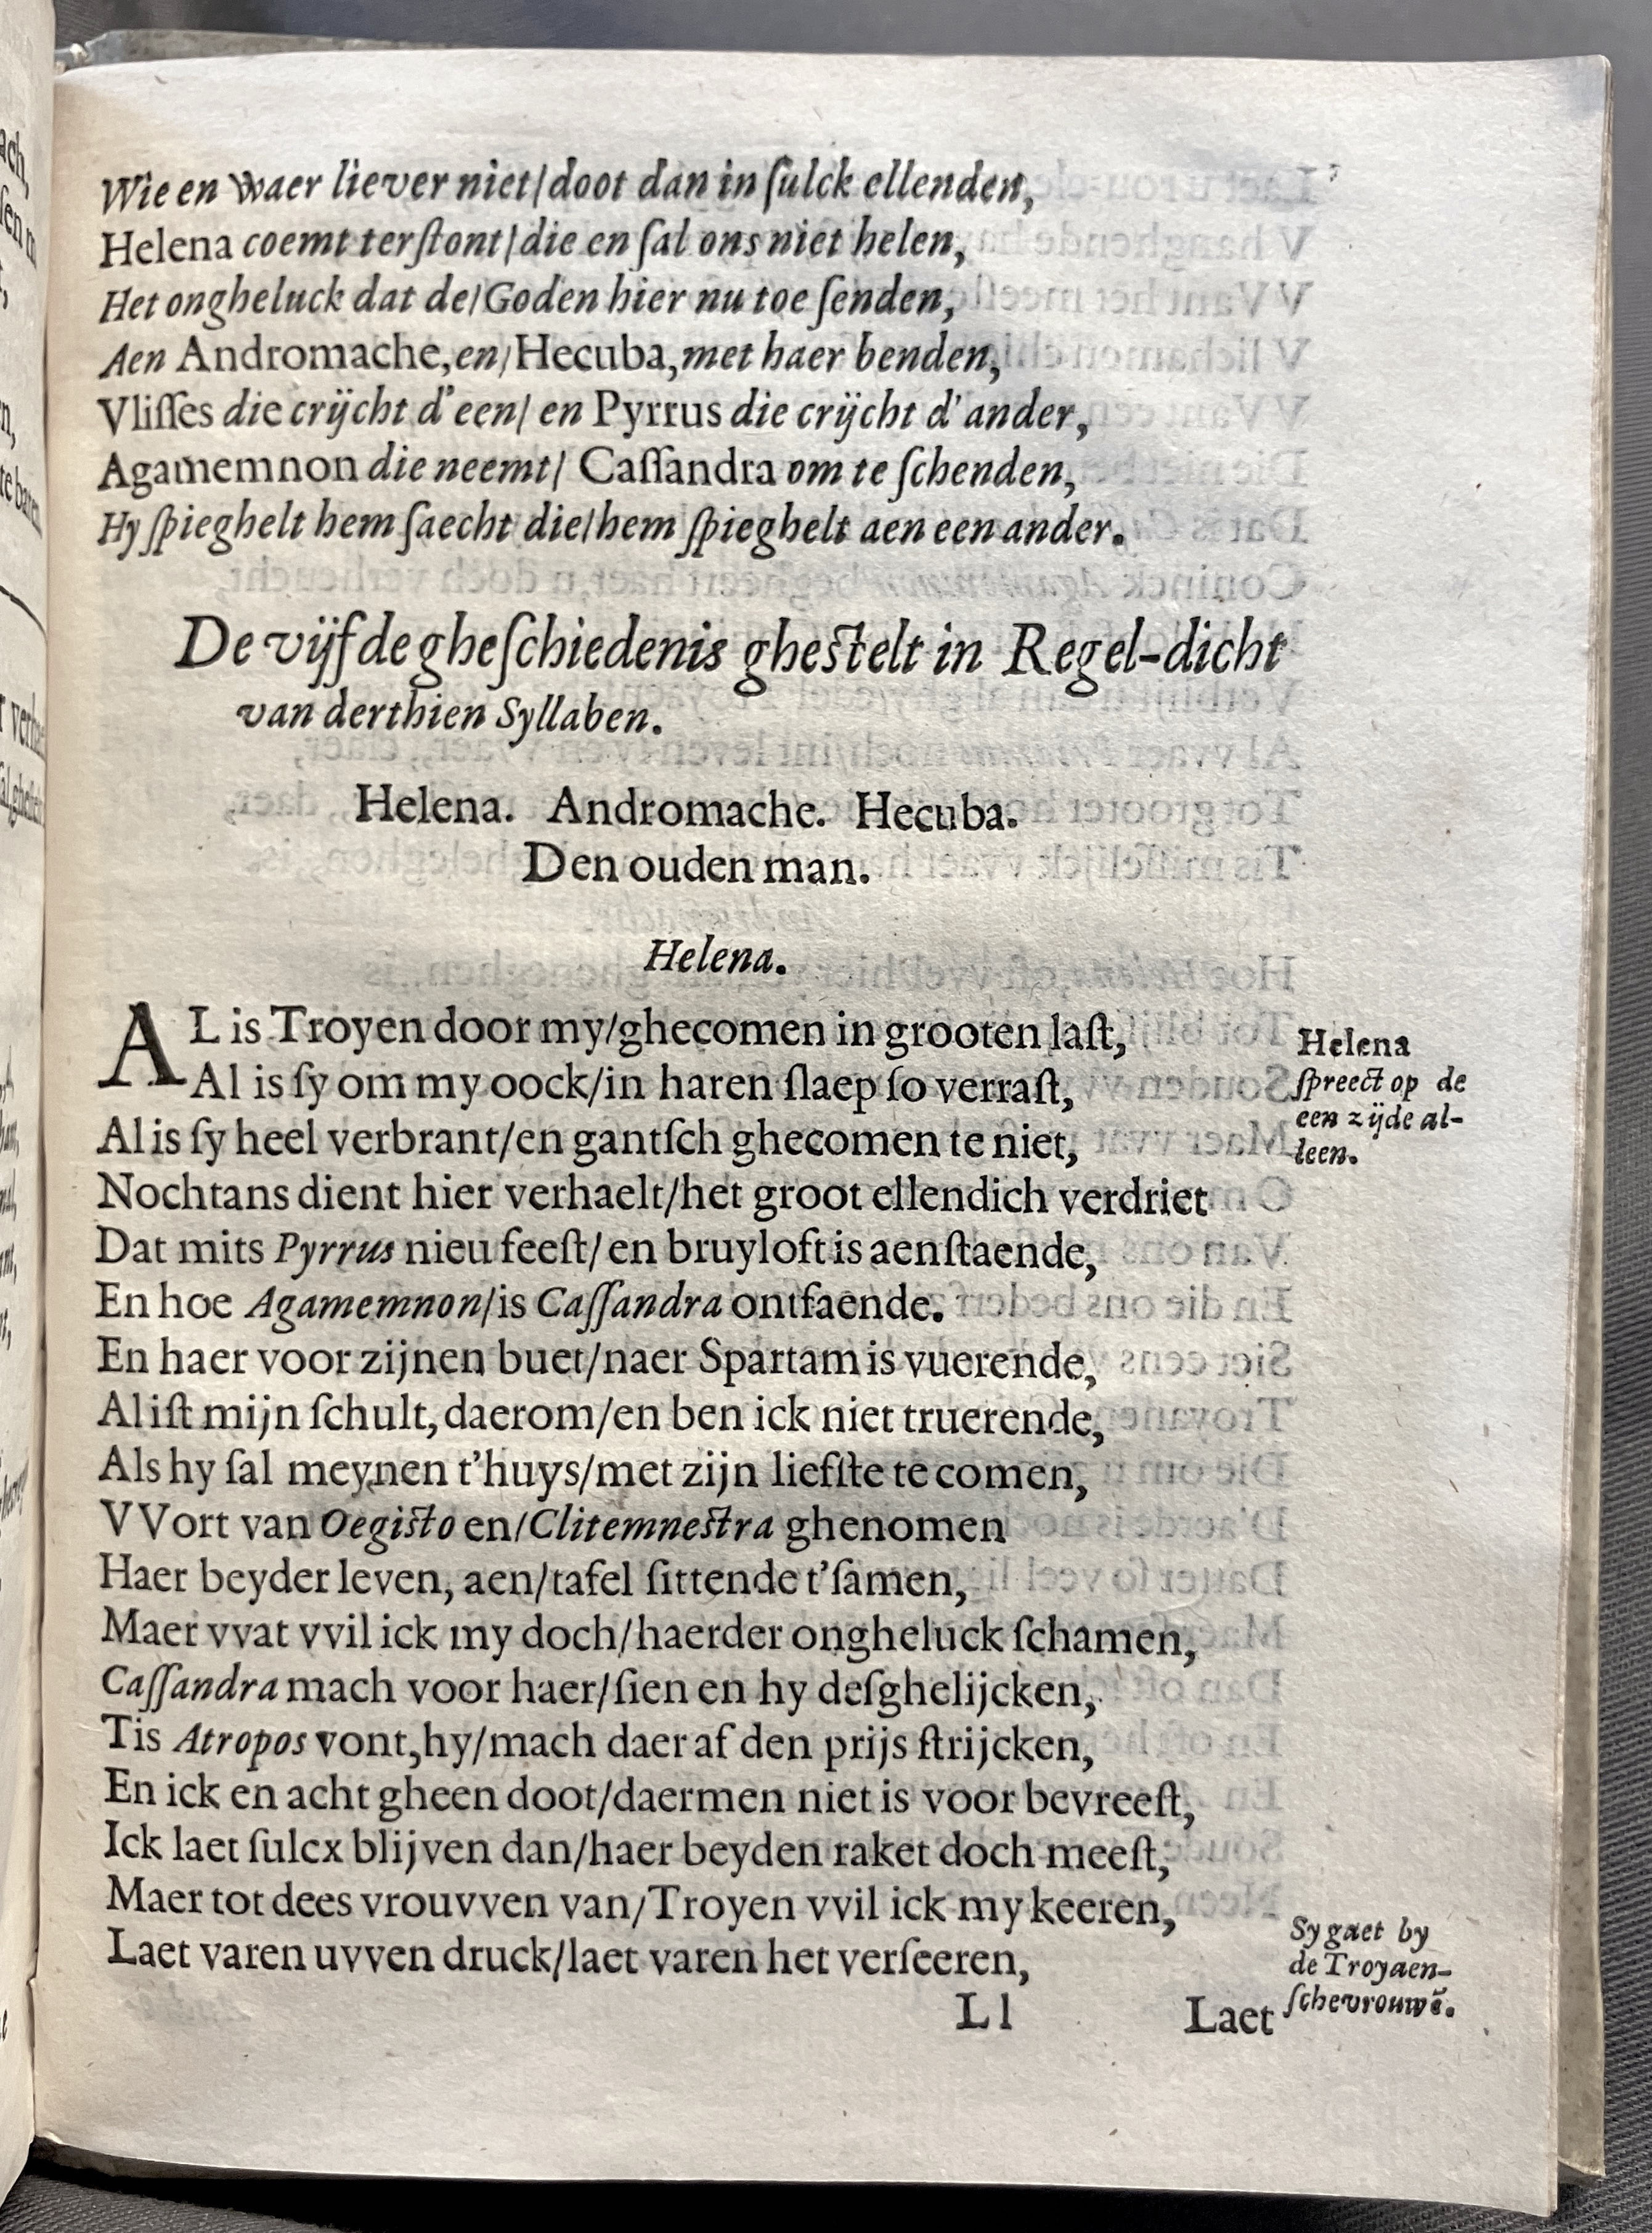 Wie en waer liever niet/doot dan in ſulck ellenden,
Helena coemt terſtont/die en ſal ons niet helen,
Het ongheluck dat de/Goden hier nu toe ſenden,
Aen Andromache, en/Hecuba, met haer benden,
Vliſſes die crijcht d'een/ en Pyrrus die crijcht d'ander,
Agamemnon die neemt/ Caſſandra om te ſchenden,
Hy ſpieghelt hem ſaecht die/hem ſpieghelt aen een ander.
De vijfde gheſchiedenis gheſtelt in Regel-dicht
van derthien Syllaben.
Helena. Andromache. Hecuba.
Den ouden man.
Helena.
AL is Troyen door my/ghecomen in grooten laſt,
Al is ſy om my oock/in haren ſlaep ſo verraſt,
Al is ſy heel verbrant/en gantſch ghecomen te niet,
Nochtans dient hier verhaelt/het groot ellendich verdriet
Dat mits Pyrrus nieu feeſt/ en bruyloft is aenſtaende,
En hoe Agamemnon/is Caſſandra ontfaende.
En haer voor zijnen buet/naer Spartam is vuerende,
Al iſt mijn ſchult, daerom/en ben ick niet truerende,
Als hy ſal meynen t'huys/met zijn liefſte te comen,
VVort van Oegiſto en/Clitemneſtra ghenomen
Haer beyder leven, aen/tafel ſittende t'ſamen,
Maer vvat vvil ick my doch/haerder ongheluck ſchamen,
Caſſandra mach voor haer/ſien en hy deſghelijcken,
Tis Atropos vont, hy/mach daer af den prijs ſtrijcken,
En ick en acht gheen doot/daermen niet is voor bevreeſt,
Ick laet ſulcx blijven dan/haer beyden raket doch meeſt,
Maer tot dees vrouvven van/Troyen vvil ick my keeren,
Laet varen uvven druck/laet varen het verſeeren,
Helena
ſpreect op de
een zijde al-
leen.
Sy gaet by
de Troyaen-
ſche vrouwē.
Ll
Laet